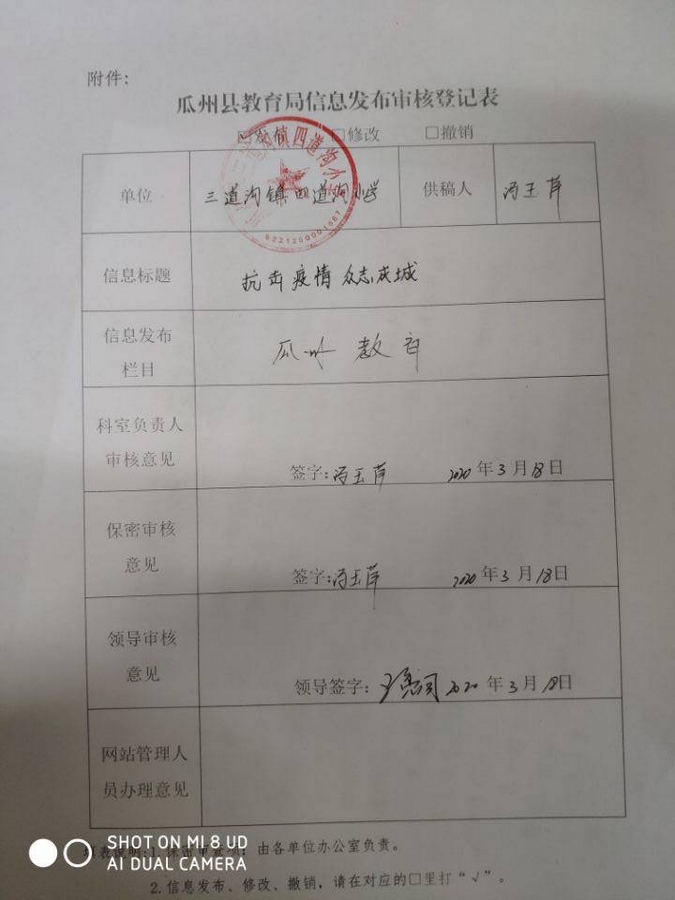 附件:
瓜州县教育局信息发布审核登记表
☑发布 □修改 □撤销
单位 三道沟镇四道沟小学 供稿人 冯玉萍
信息标题 抗击疫情 众志成城
信息发布
栏目 瓜州 教育
科室负责人
审核意见
签字:冯玉萍 2020年3月18日
保密审核
意见
签字:冯玉萍 2020年3月18日
领导审核
意见
领导签字: 2020年3月18日
网站管理人
员办理意见
由各单位办公室负责。
2.信息发布、修改、撤销,请在对应的□里打“√”。
SHOT ON MI 8 UD
AI DUAL CAMERA